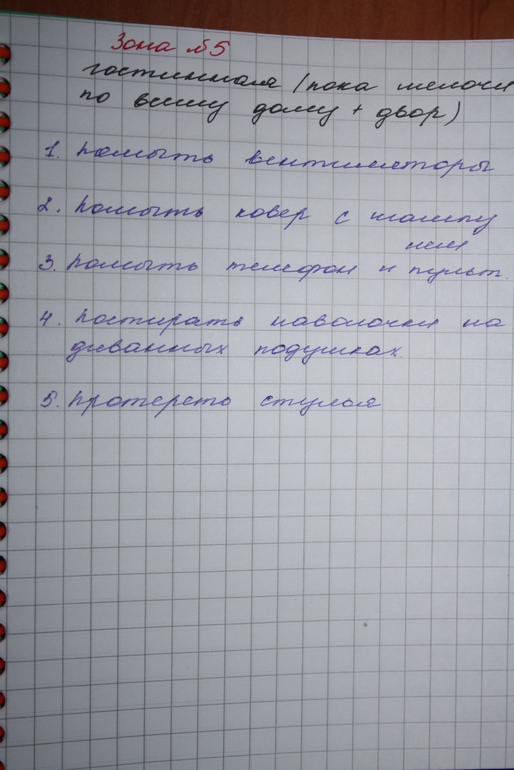 Зона №5
гостинная (пока мелочи
по всему дому + двор)
1. Помыть вентиляторы
2. Помыть ковер с шампу
нем
3. Помыть телефон и пульт.
4. Постирать наволочки на
диванных подушках.
5. Протереть стулья